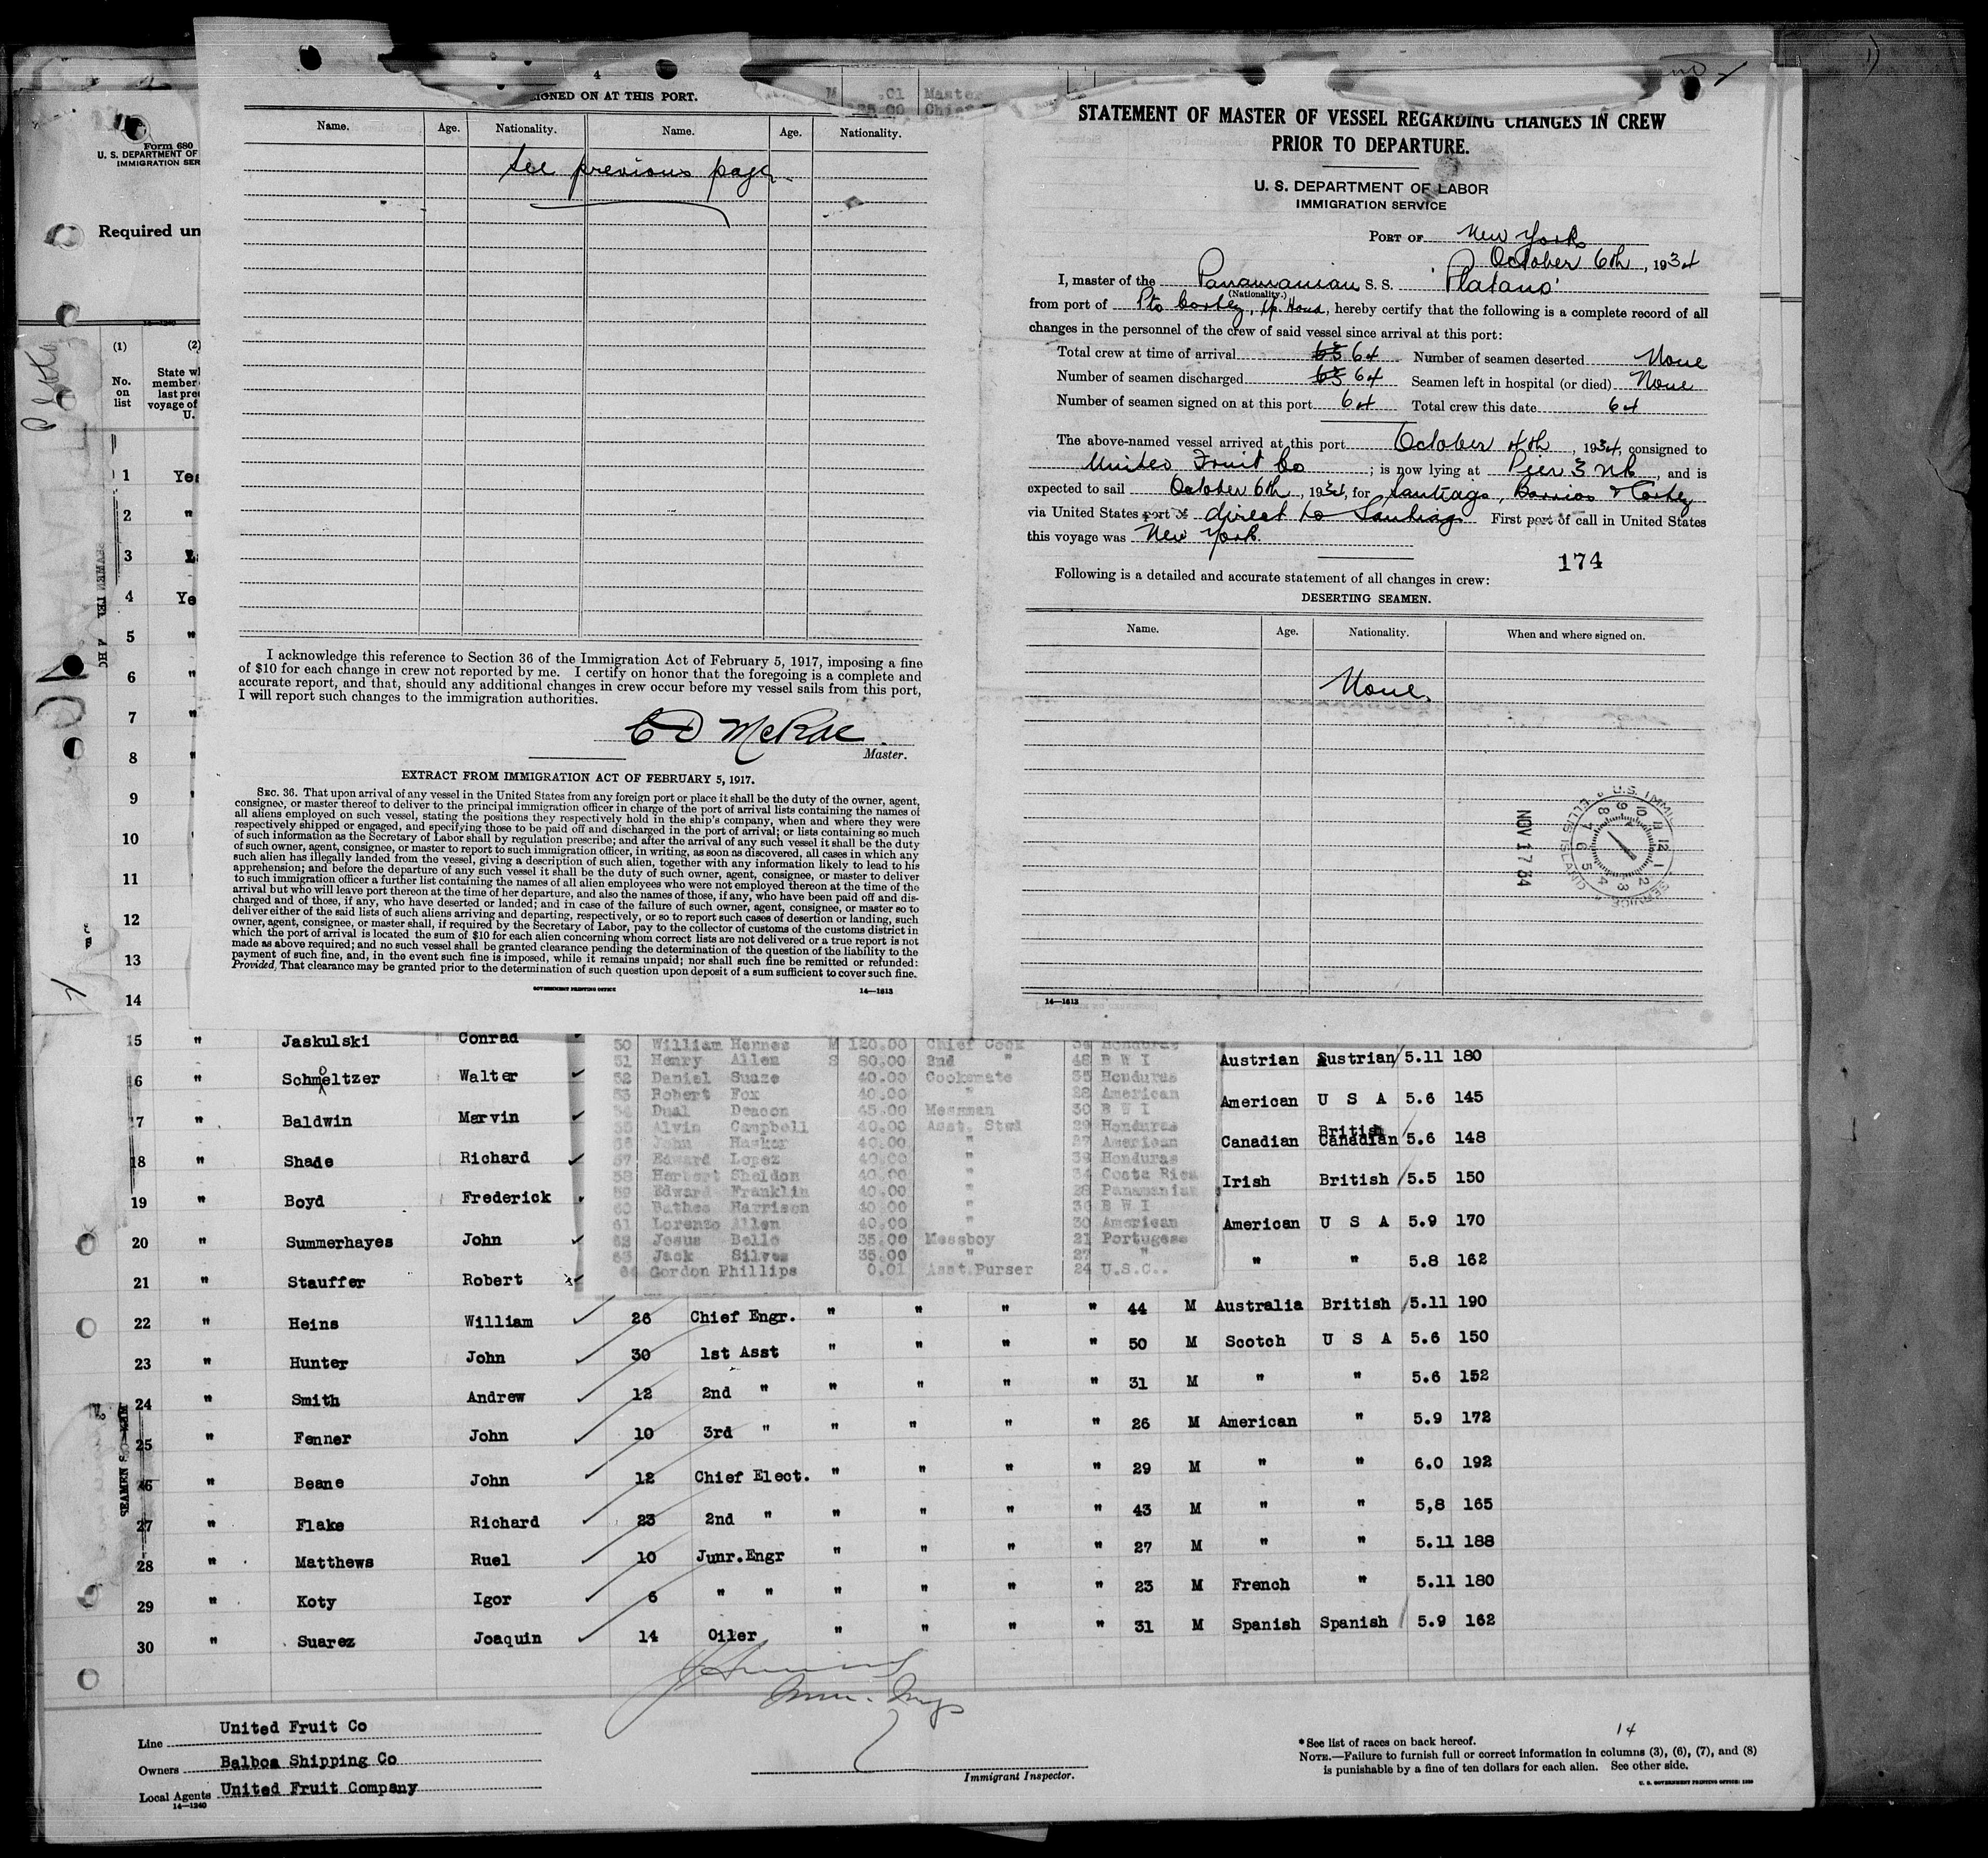 4
SIGNED ON AT THIS PORT.
M .01 Master
25.00 Chief
Name. Age. Nationality. Name. Age. Nationality.
See previous page
I acknowledge this reference to Section 36 of the Immigration Act of February 5, 1917, imposing a fine
of $10 for each change in crew not reported by me. I certify on honor that the foregoing is a complete and
accurate report, and that, should any additional changes in crew occur before my vessel sails from this port,
I will report such changes to the immigration authorities.
C D McRae
Master.
EXTRACT FROM IMMIGRATION ACT OF FEBRUARY 5, 1917.
SEC. 36. That upon arrival of any vessel in the United States from any foreign port or place it shall be the duty of the owner, agent,
consignee, or master thereof to deliver to the principal immigration officer in charge of the port of arrival lists containing the names of
all aliens employed on such vessel, stating the positions they respectively hold in the ship's company, when and where they were
respectively shipped or engaged, and specifying those to be paid off and discharged in the port of arrival; or lists containing so much
of such information as the Secretary of Labor shall by regulation prescribe; and after the arrival of any such vessel it shall be the duty
of such owner, agent, consignee, or master to report to such immigration officer, in writing, as soon as discovered, all cases in which any
such alien has illegally landed from the vessel, giving a description of such alien, together with any information likely to lead to his
apprehension; and before the departure of any such vessel it shall be the duty of such owner, agent, consignee, or master to deliver
to such immigration officer a further list containing the names of all alien employees who were not employed thereon at the time of the
arrival but who will leave port thereon at the time of her departure, and also the names of those, if any, who have been paid off and dis-
charged and of those, if any, who have deserted or landed; and in case of the failure of such owner, agent, consignee, or master so to
deliver either of the said lists of such aliens arriving and departing, respectively, or so to report such cases of desertion or landing, such
owner, agent, consignee, or master shall, if required by the Secretary of Labor, pay to the collector of customs of the customs district in
which the port of arrival is located the sum of $10 for each alien concerning whom correct lists are not delivered or a true report is not
made as above required; and no such vessel shall be granted clearance pending the determination of the question of the liability to the
payment of such fine, and, in the event such fine is imposed, while it remains unpaid; nor shall such fine be remitted or refunded:
Provided, That clearance may be granted prior to the determination of such question upon deposit of a sum sufficient to cover such fine.
GOVERNMENT PRINTING OFFICE 14—1613
STATEMENT OF MASTER OF VESSEL REGARDING CHANGES IN CREW
PRIOR TO DEPARTURE.
U. S. DEPARTMENT OF LABOR
IMMIGRATION SERVICE
PORT OF New York
October 6th, 1934
I, master of the Panamanian S. S. 'Platano'
(Nationality.)
from port of Pto Cortez, Sp. Hond, hereby certify that the following is a complete record of all
changes in the personnel of the crew of said vessel since arrival at this port:
Total crew at time of arrival 63 64 Number of seamen deserted None
Number of seamen discharged 63 64 Seamen left in hospital (or died) None
Number of seamen signed on at this port 64 Total crew this date 64
The above-named vessel arrived at this port October 4th, 1934, consigned to
United Fruit Co; is now lying at Pier 3 NR, and is
expected to sail October 6th, 1934, for Santiago, Barrios & Cortez
via United States port of direct to Santiago First port of call in United States
this voyage was New York.
174
Following is a detailed and accurate statement of all changes in crew:
DESERTING SEAMEN.
Name. Age. Nationality. When and where signed on.
None
NOV 17 34
U.S. IMMIG. SERVICE ELLIS ISLAND
14—1613
Form 680
U. S. DEPARTMENT OF
IMMIGRATION SER
Required un
14—1240
(1) (2)
No. on list
State wh
member
last pre
voyage of
U.
1 Yes
2 "
3
4 Ye
5 "
6 "
7 "
8 "
9
10
11
12
13
14
15 " Jaskulski Conrad
16 " Schmeltzer Walter Austrian Austrian 5.11 180
17 " Baldwin Marvin American U S A 5.6 145
18 " Shade Richard Canadian British Canadian 5.6 148
19 " Boyd Frederick Irish British 5.5 150
20 " Summerhayes John American U S A 5.9 170
21 " Stauffer Robert " " 5.8 162
50 William Hennes M 120.00 Chief Cook 36 Honduras
51 Henry Allen S 80.00 2nd " 48 B W I
52 Daniel Suaze 40.00 Cooksmate 35 Honduras
53 Robert Fox 40.00 " 22 American
54 Dual Deacon 45.00 Messman 30 B W I
55 Alvin Campbell 40.00 Asst. Stwd 29 Honduras
56 John Hasker 40.00 " 27 American
57 Edward Lopez 40.00 " 39 Honduras
58 Herbert Sheldon 40.00 " 34 Costa Rica
59 Edward Franklin 40.00 " 28 Panamanian
60 Bathes Harrison 40.00 " 36 B W I
61 Lorenzo Allen 40.00 " 30 American
62 Jesus Bello 35.00 Messboy 21 Portugese
63 Jack Silves 35.00 " 27 "
64 Gordon Phillips 0.01 Asst.Purser 24 U.S.C..
22 " Heins William 26 Chief Engr. " " " " 44 M Australia British 5.11 190
23 " Hunter John 30 1st Asst " " " " 50 M Scotch U S A 5.6 150
24 " Smith Andrew 12 2nd " " " " " 31 M " " 5.6 152
25 " Fenner John 10 3rd " " " " " 26 M American " 5.9 172
26 " Beane John 12 Chief Elect. " " " " 29 M " " 6.0 192
27 " Flake Richard 23 2nd " " " " " 43 M " " 5,8 165
28 " Matthews Ruel 10 Junr.Engr " " " " 27 M " " 5.11 188
29 " Koty Igor 6 " " " " " " 23 M French " 5.11 180
30 " Suarez Joaquin 14 Oiler " " " " 31 M Spanish Spanish 5.9 162
Line United Fruit Co
Owners Balboa Shipping Co
Local Agents United Fruit Company
14—1240
Immigrant Inspector.
14
* See list of races on back hereof.
NOTE.—Failure to furnish full or correct information in columns (3), (6), (7), and (8)
is punishable by a fine of ten dollars for each alien. See other side.